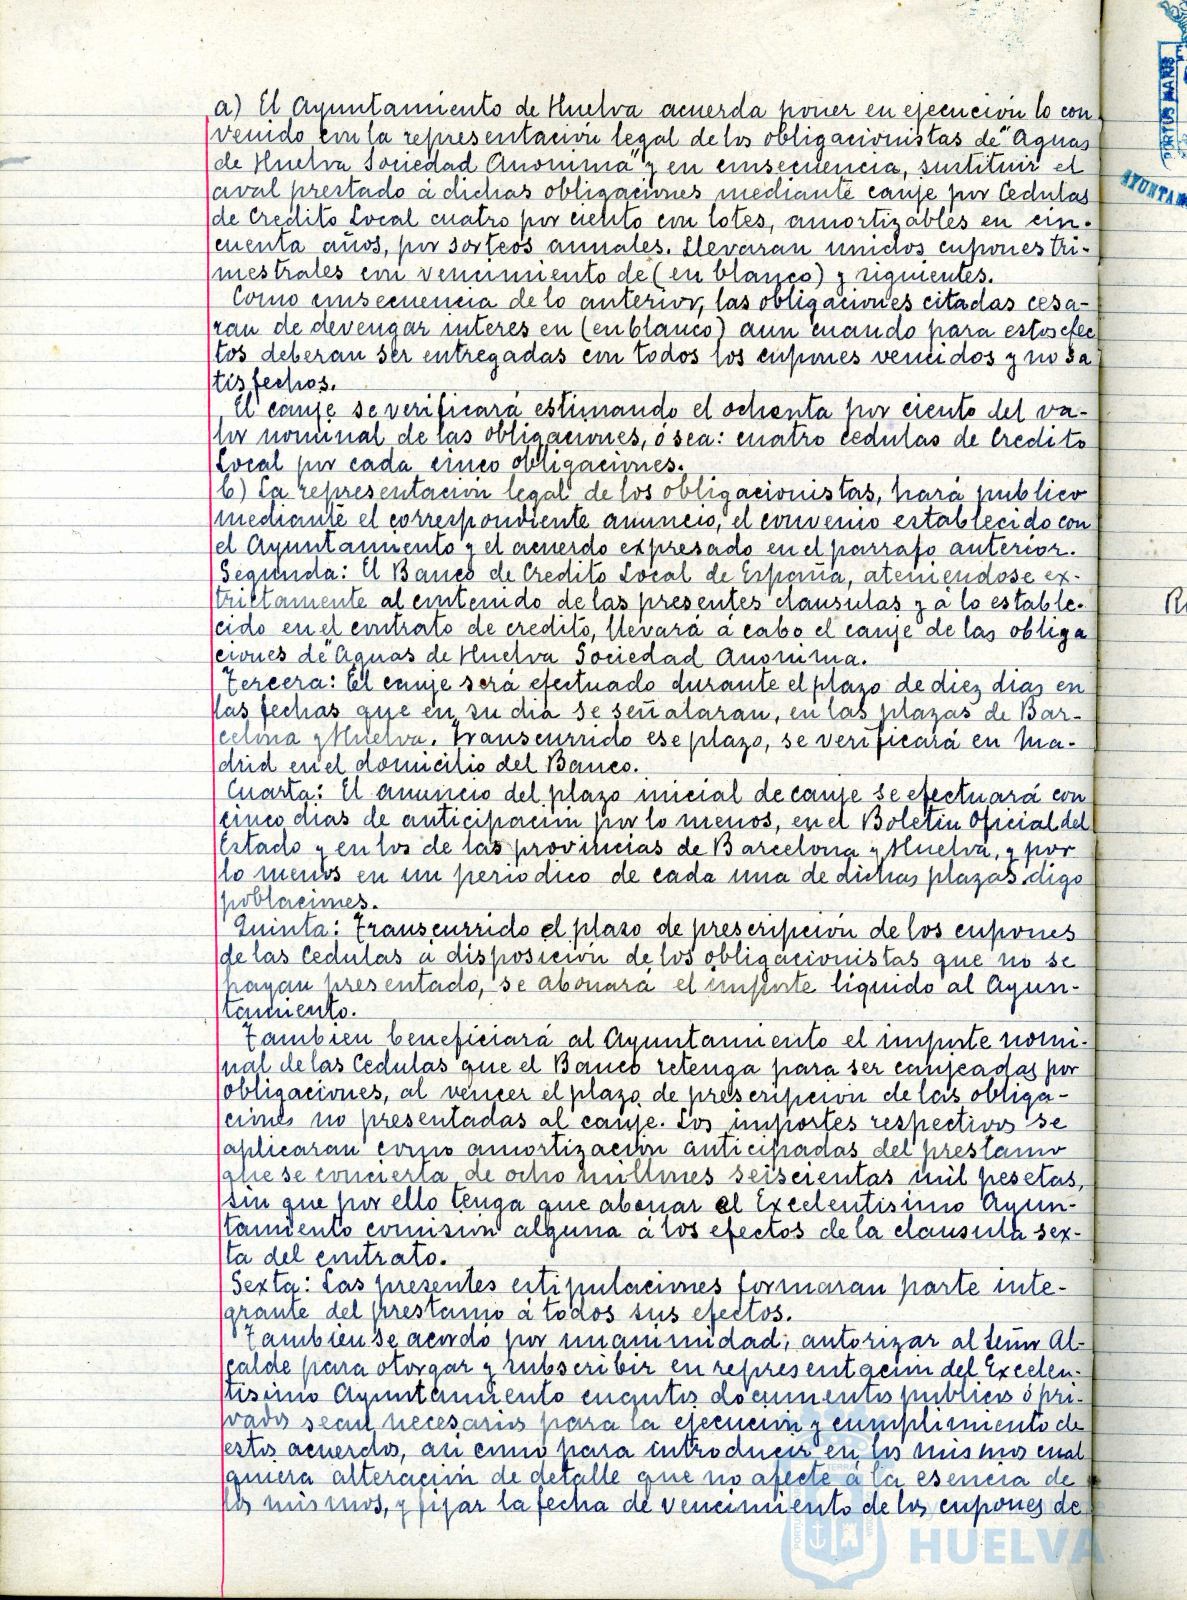 a) El Ayuntamiento de Huelva acuerda poner en ejecución lo con
venido con la representacion legal de los obligacionistas de "Aguas
de Huelva Sociedad Anonima" y en consecuencia, sustituir el
aval prestado á dichas obligaciones mediante canje por Cedulas
de Credito Local cuatro por ciento con lotes, amortizables en cin-
cuenta años, por sorteos anuales. Llevaran unidos cupones tri-
mestrales con vencimiento de (en blanco) y siguientes.
Como consecuencia de lo anterior, las obligaciones citadas cesa-
ran de devengar interes en (en blanco) aun cuando para estos efec
tos deberan ser entregadas con todos los cupones vencidos y no sa
tisfechos.
El canje se verificará estimando el ochenta por ciento del va-
lor nominal de las obligaciones, ó sea: cuatro cedulas de Credito
Local por cada cinco obligaciones.
b) La representación legal de los obligacionistas, hará publico
mediante el correspondiente anuncio, el convenio establecido con
el Ayuntamiento y el acuerdo expresado en el parrafo anterior.
Segunda: El Banco de Credito Local de España, ateniendose ex-
trictamente al contenido de las presentes clausulas y á lo estable-
cido en el contrato de credito, llevará á cabo el canje de las obliga
ciones de "Aguas de Huelva Sociedad Anonima.
Tercera: El canje será efectuado durante el plazo de diez dias en
las fechas que en su dia se señalaran, en las plazas de Bar-
celona y Huelva. Transcurrido ese plazo, se verificará en Ma-
drid en el domicilio del Banco.
Cuarta: El anuncio del plazo inicial de canje se efectuará con
cinco dias de anticipación por lo menos, en el Boletin Oficial del
Estado y en los de las provincias de Barcelona y Huelva, y por
lo menos en un periodico de cada una de dichas plazas digo
poblaciones.
Quinta: Transcurrido el plazo de prescripción de los cupones
de las Cedulas á disposición de los obligacionistas que no se
hayan presentado, se abonará el importe liquido al Ayun-
tamiento.
Tambien beneficiará al Ayuntamiento el importe nomi-
nal de las Cedulas que el Banco retenga para ser canjeadas por
obligaciones, al vencer el plazo de prescripción de las obliga-
ciones no presentadas al canje. Los importes respectivos se
aplicaran como amortización anticipadas del prestamo
que se concierta de ocho millones seiscientas mil pesetas,
sin que por ello tenga que abonar el Excelentisimo Ayun-
tamiento comisión alguna á los efectos de la clausula sex-
ta del contrato.
Sexta: Las presentes estipulaciones formaran parte inte-
grante del prestamo á todos sus efectos.
Tambien se acordó por unanimidad, autorizar al Señor Al-
calde para otorgar y subscribir en representación del Excelen-
tisimo Ayuntamiento cuantos documentos publicos ó pri-
vados sean necesarios para la ejecución y cumplimiento de
estos acuerdos, asi como para introducir en los mismos cual
quiera alteración de detalle que no afecte á la esencia de
los mismos, y fijar la fecha de vencimiento de los cupones de
HUELVA
PORTUS MARIS
AYUNTAM